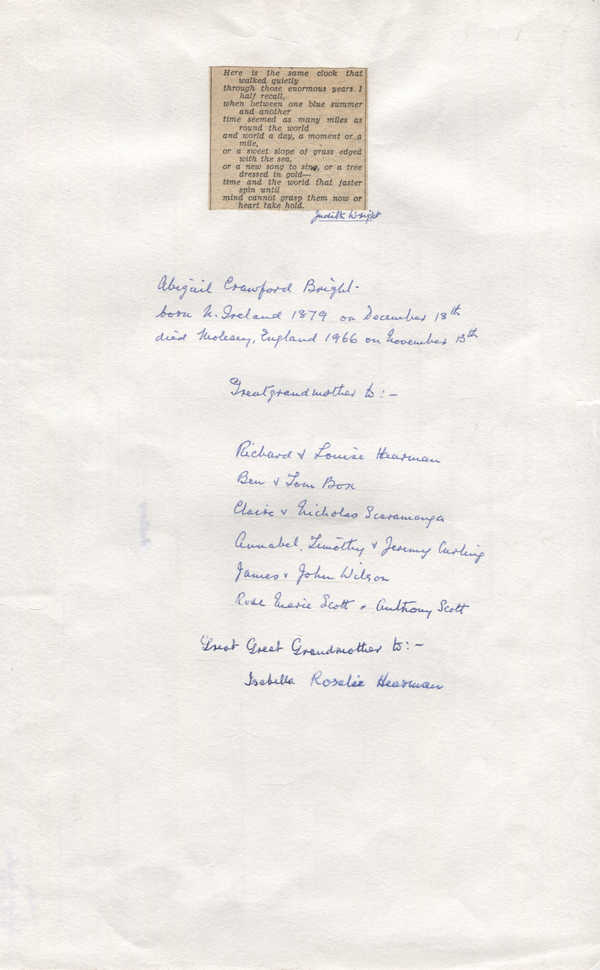 Here is the same clock that
walked quietly
through those enormous years I
half recall,
when between one blue summer
and another
time seemed as many miles as
round the world
and world a day, a moment or a
mile,
or a sweet slope of grass edged
with the sea,
or a new song to sing, or a tree
dressed in gold—
time and the world that faster
spin until
mind cannot grasp them now or
heart take hold.
Judith Wright
Abigail Crawford Bright.
born N. Ireland 1879 on December 18th
died England 1966 on November 13th
Greatgrandmother to:-
Richard & Louise Hearman
Ben & Tom Box
Claire & Nicholas Scaramanga
Annabel, Timothy & Jeremy Curling
James & John Wilson
Rose Marie Scott & Anthony Scott
Great Great Grandmother to:-
Isabella Rosalie Hearman